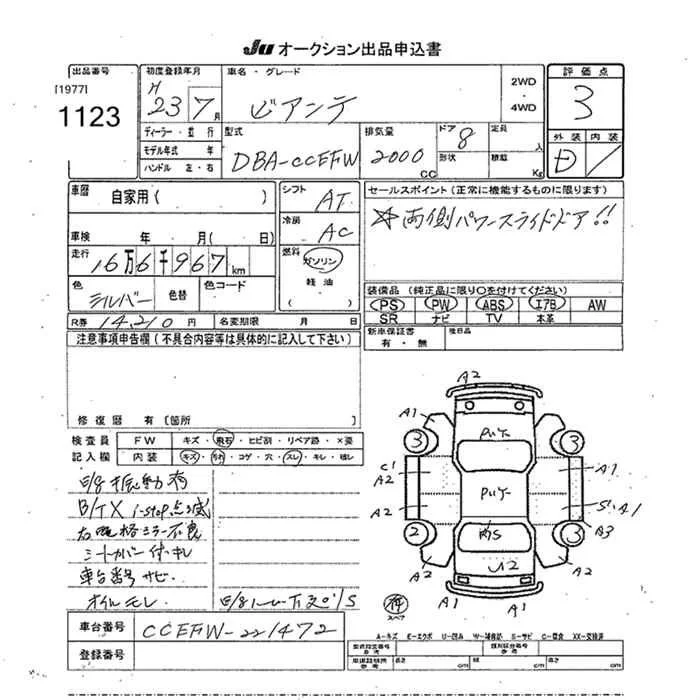 JU オークション出品申込書
出品番号
[1977]
1123
初度登録年月
H 23 7 月
車名・グレード
ビアンテ
2WD
・
4WD
評価点
3
ディーラー・並行
モデル年式 年
ハンドル 左・右
型式
DBA-CCEFW
排気量
2000 CC
ドア 8
形状
定員 人
積載 Kg
外装 内装
D
車歴
自家用( )
車検 年 月( 日)
走行
16万6千967km
色
シルバー
色替
色コード
シフト
AT
冷房
AC
燃料
ガソリン
軽油
( )
セールスポイント(正常に機能するものに限ります)
両側パワースライドドア!!
装備品(純正品に限り○を付けてください)
PS PW ABS エアB AW
SR ナビ TV 本革
新車保証書
有・無
後日品
R券 14,210 円
名変期限 月 日
注意事項申告欄(不具合内容等は具体的に記入して下さい)
修復歴 有[箇所 ]
検査員
記入欄
FW キズ・飛石・ヒビ割・リペア跡・×要
内装 キズ・汚れ・コゲ・穴・スレ・キレ・破レ
E/g 振動有
B/TX i-stop点滅
右 格ミラー不良
シートカバー付キレ
車台番号サビ
オイルモレ
車台番号 CCEFW-221472
登録番号
A2
A1
3
3
C1
A2
A1
A2
S1 A1
2
3
A3
A2
A2
A1
A1
U2
スペア
A-キズ E-エクボ U-凹み W-補修跡 S-サビ C-腐食 XX-交換済
長さ cm 幅 cm 高さ cm